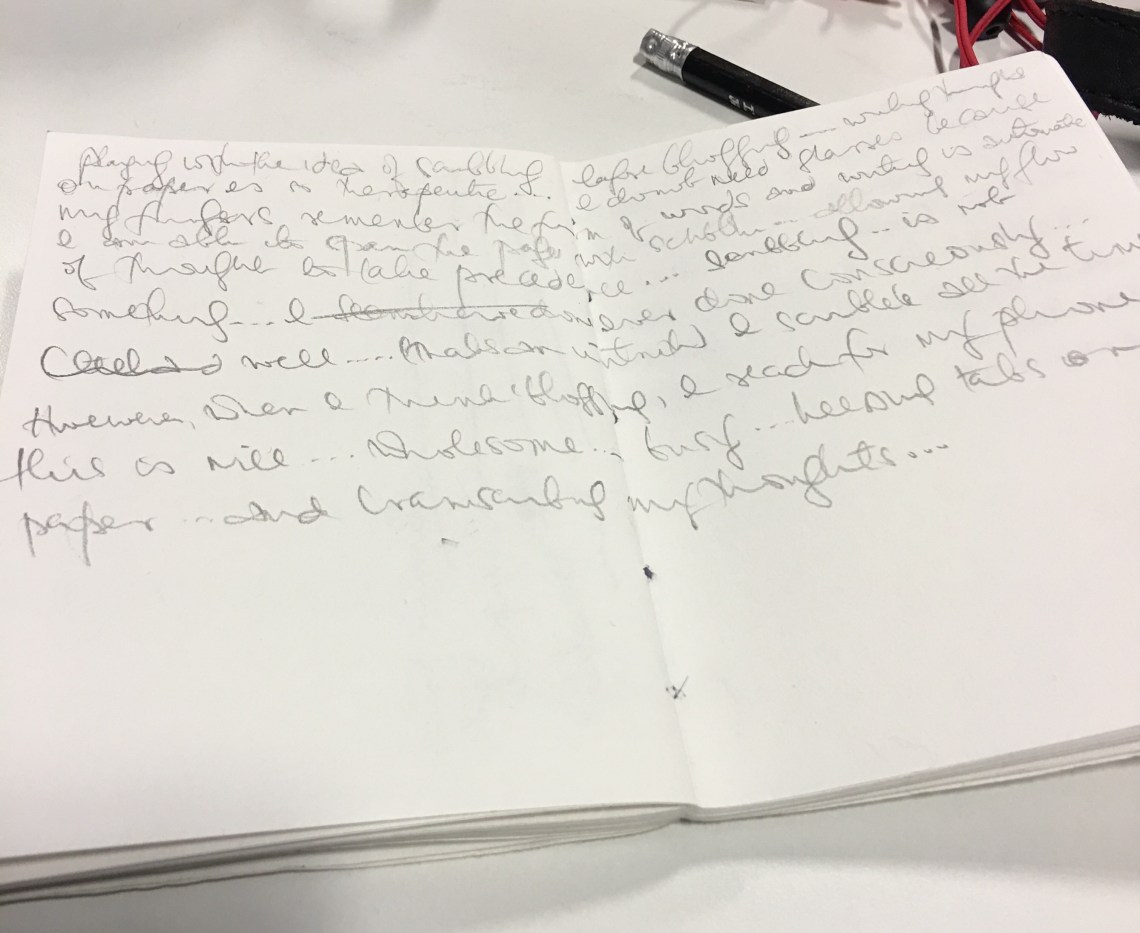 playing with the idea of scribbling before blogging.... writing things
on paper is therapeutic... I do not need glasses because
my fingers remember the form of words and writing is automatic
I am able to the page with ... allowing my flow
of thought to take precedence.... scribbling... is not
something... I ever done consciously...
well..... I scribble all the time
However, when I think 'blogging, I reach for my phone
this is nice.... wholesome... busy... keeping tabs on
paper ... and transcribing my thoughts...